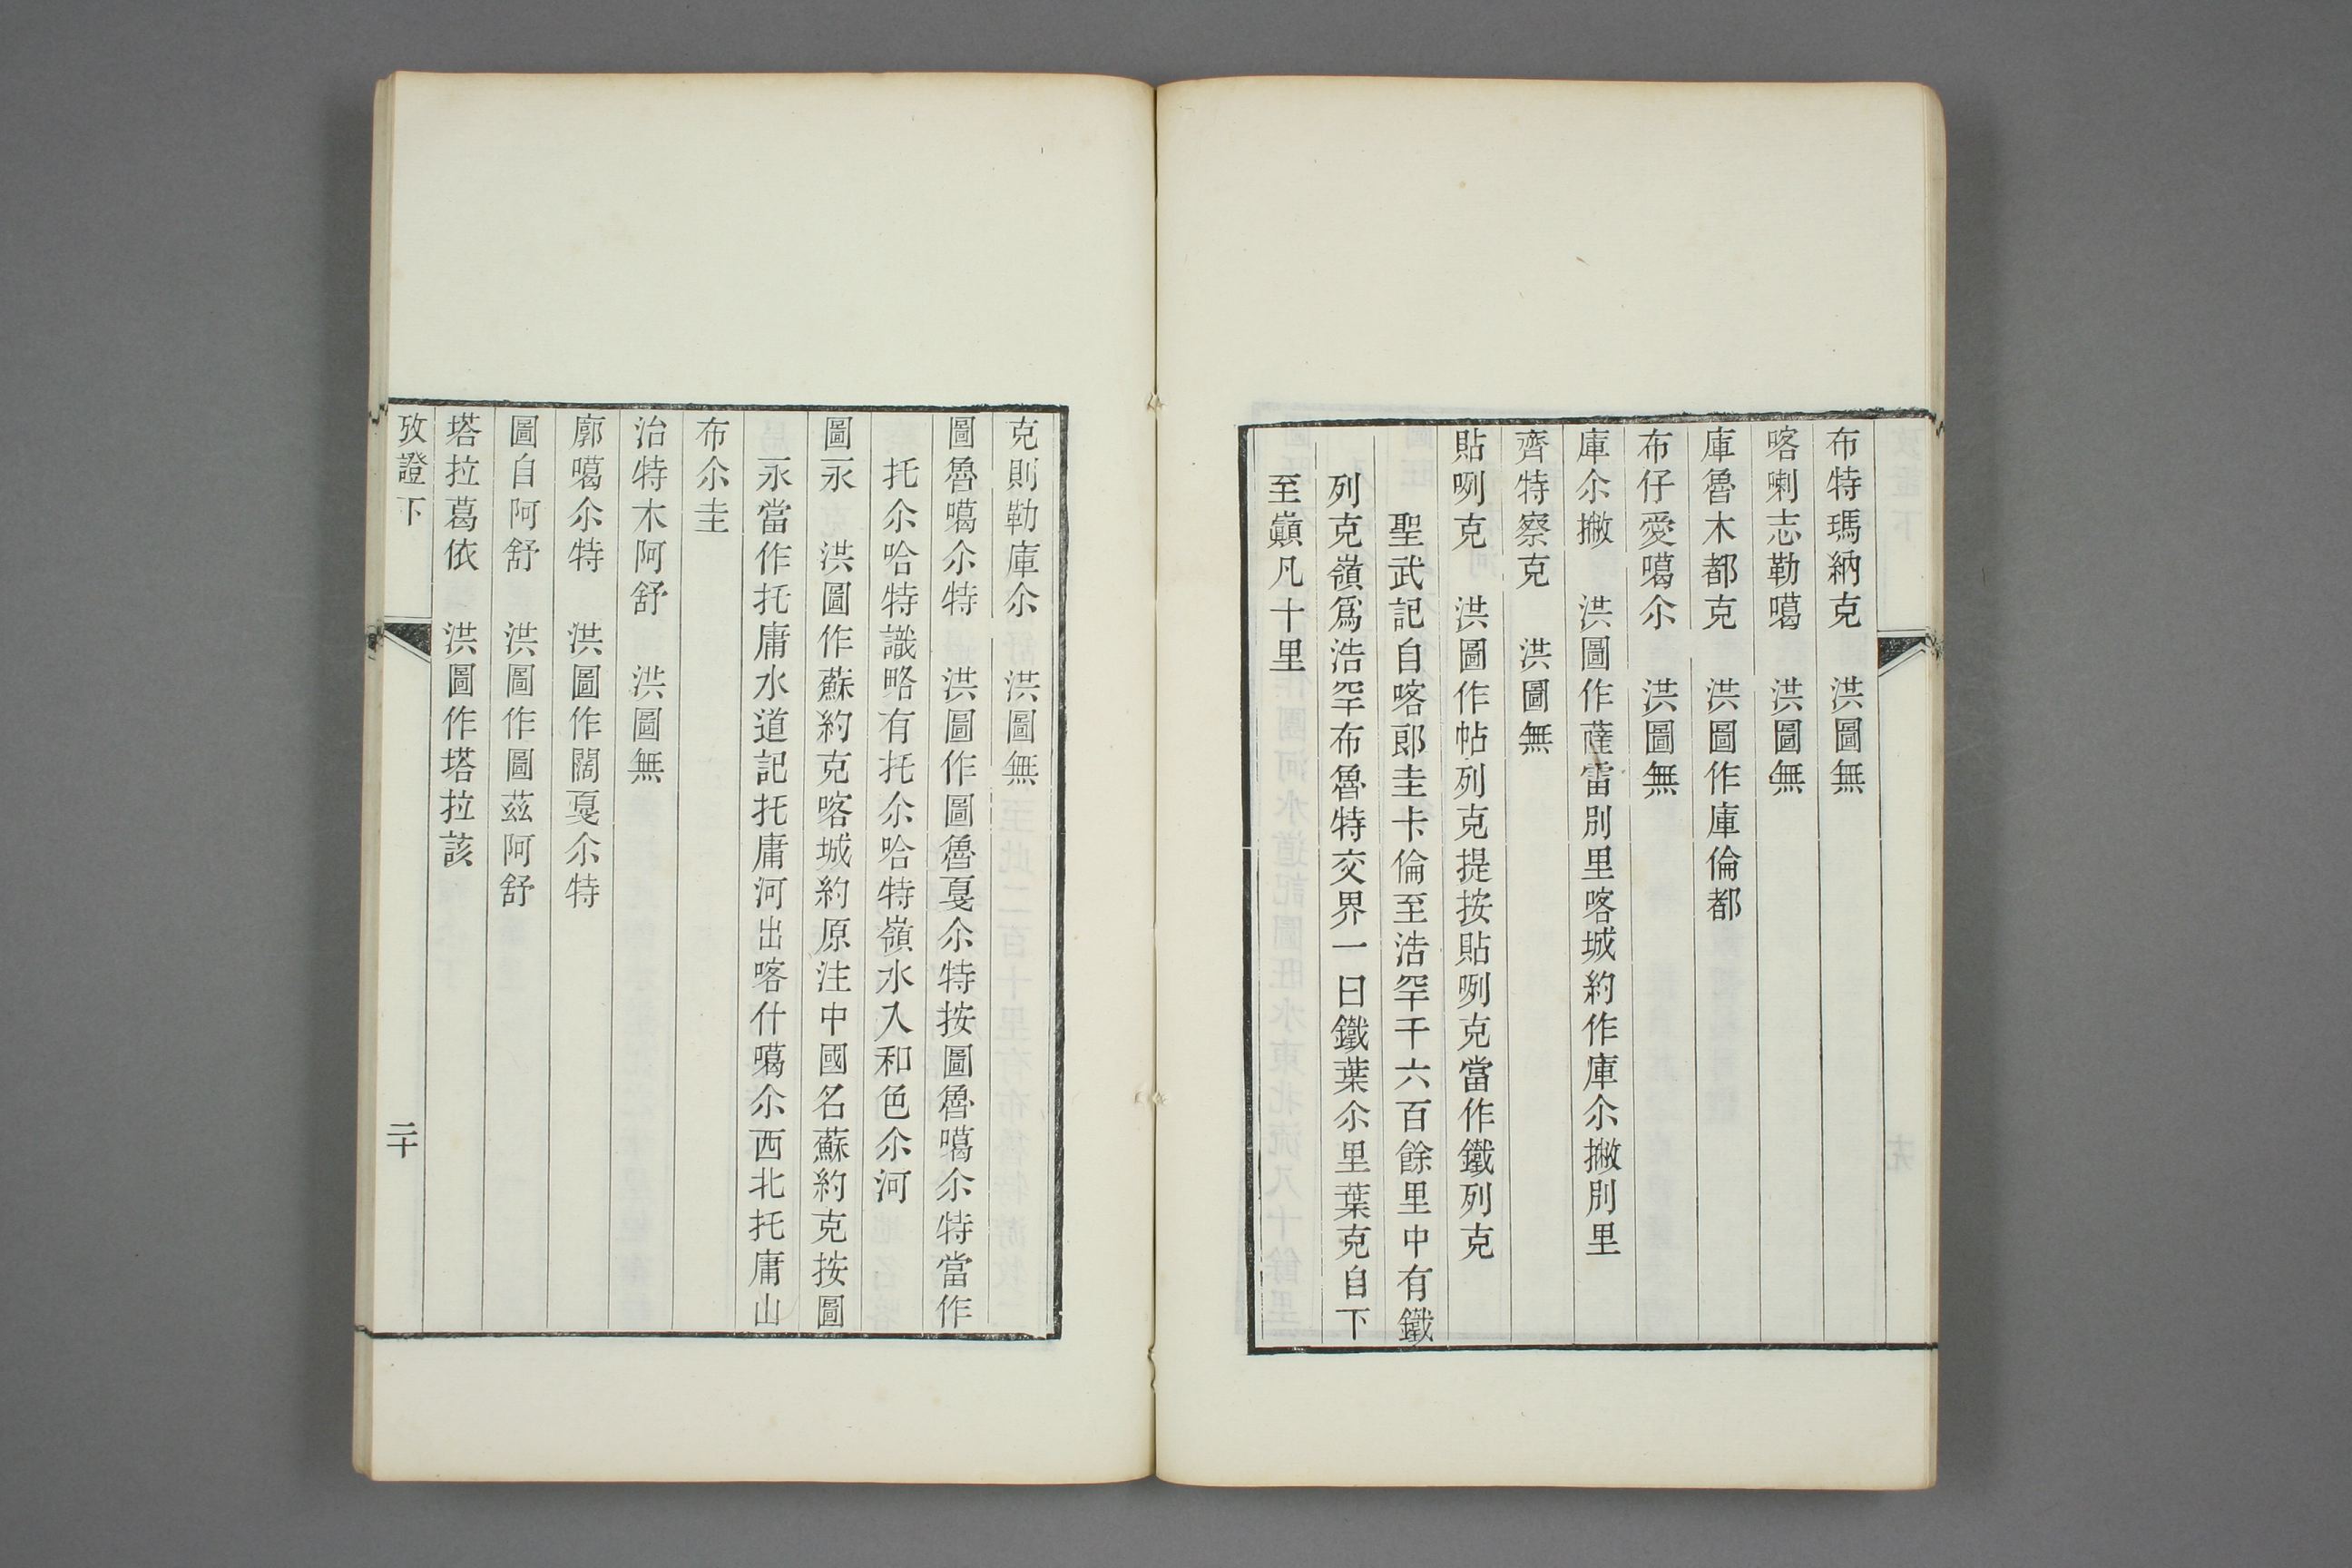 布特瑪納克　洪圖無
喀喇志勒噶　洪圖無
庫魯木都克　洪圖作庫倫都
布仔愛噶尒　洪圖無
庫尒撇　洪圖作薩雷別里喀城約作庫尒撇別里
齊特察克　洪圖無
貼咧克　洪圖作帖列克提按貼咧克當作鐵列克
聖武記自喀郎圭卡倫至浩罕千六百餘里中有鐵
列克嶺爲浩罕布魯特交界一曰鐵葉尒里葉克自下
至巔凡十里
克則勒庫尒　洪圖無
圖魯噶尒特　洪圖作圖魯戞尒特按圖魯噶尒特當作
托尒哈特識略有托尒哈特嶺水入和色尒河
圖永　洪圖作蘇約克喀城約原注中國名蘇約克按圖
永當作托庸水道記托庸河出喀什噶尒西北托庸山
布尒圭
治特木阿舒　洪圖無
廓噶尒特　洪圖作闊戞尒特
圖自阿舒　洪圖作圖茲阿舒
塔拉葛依　洪圖作塔拉該
攷證下　二十